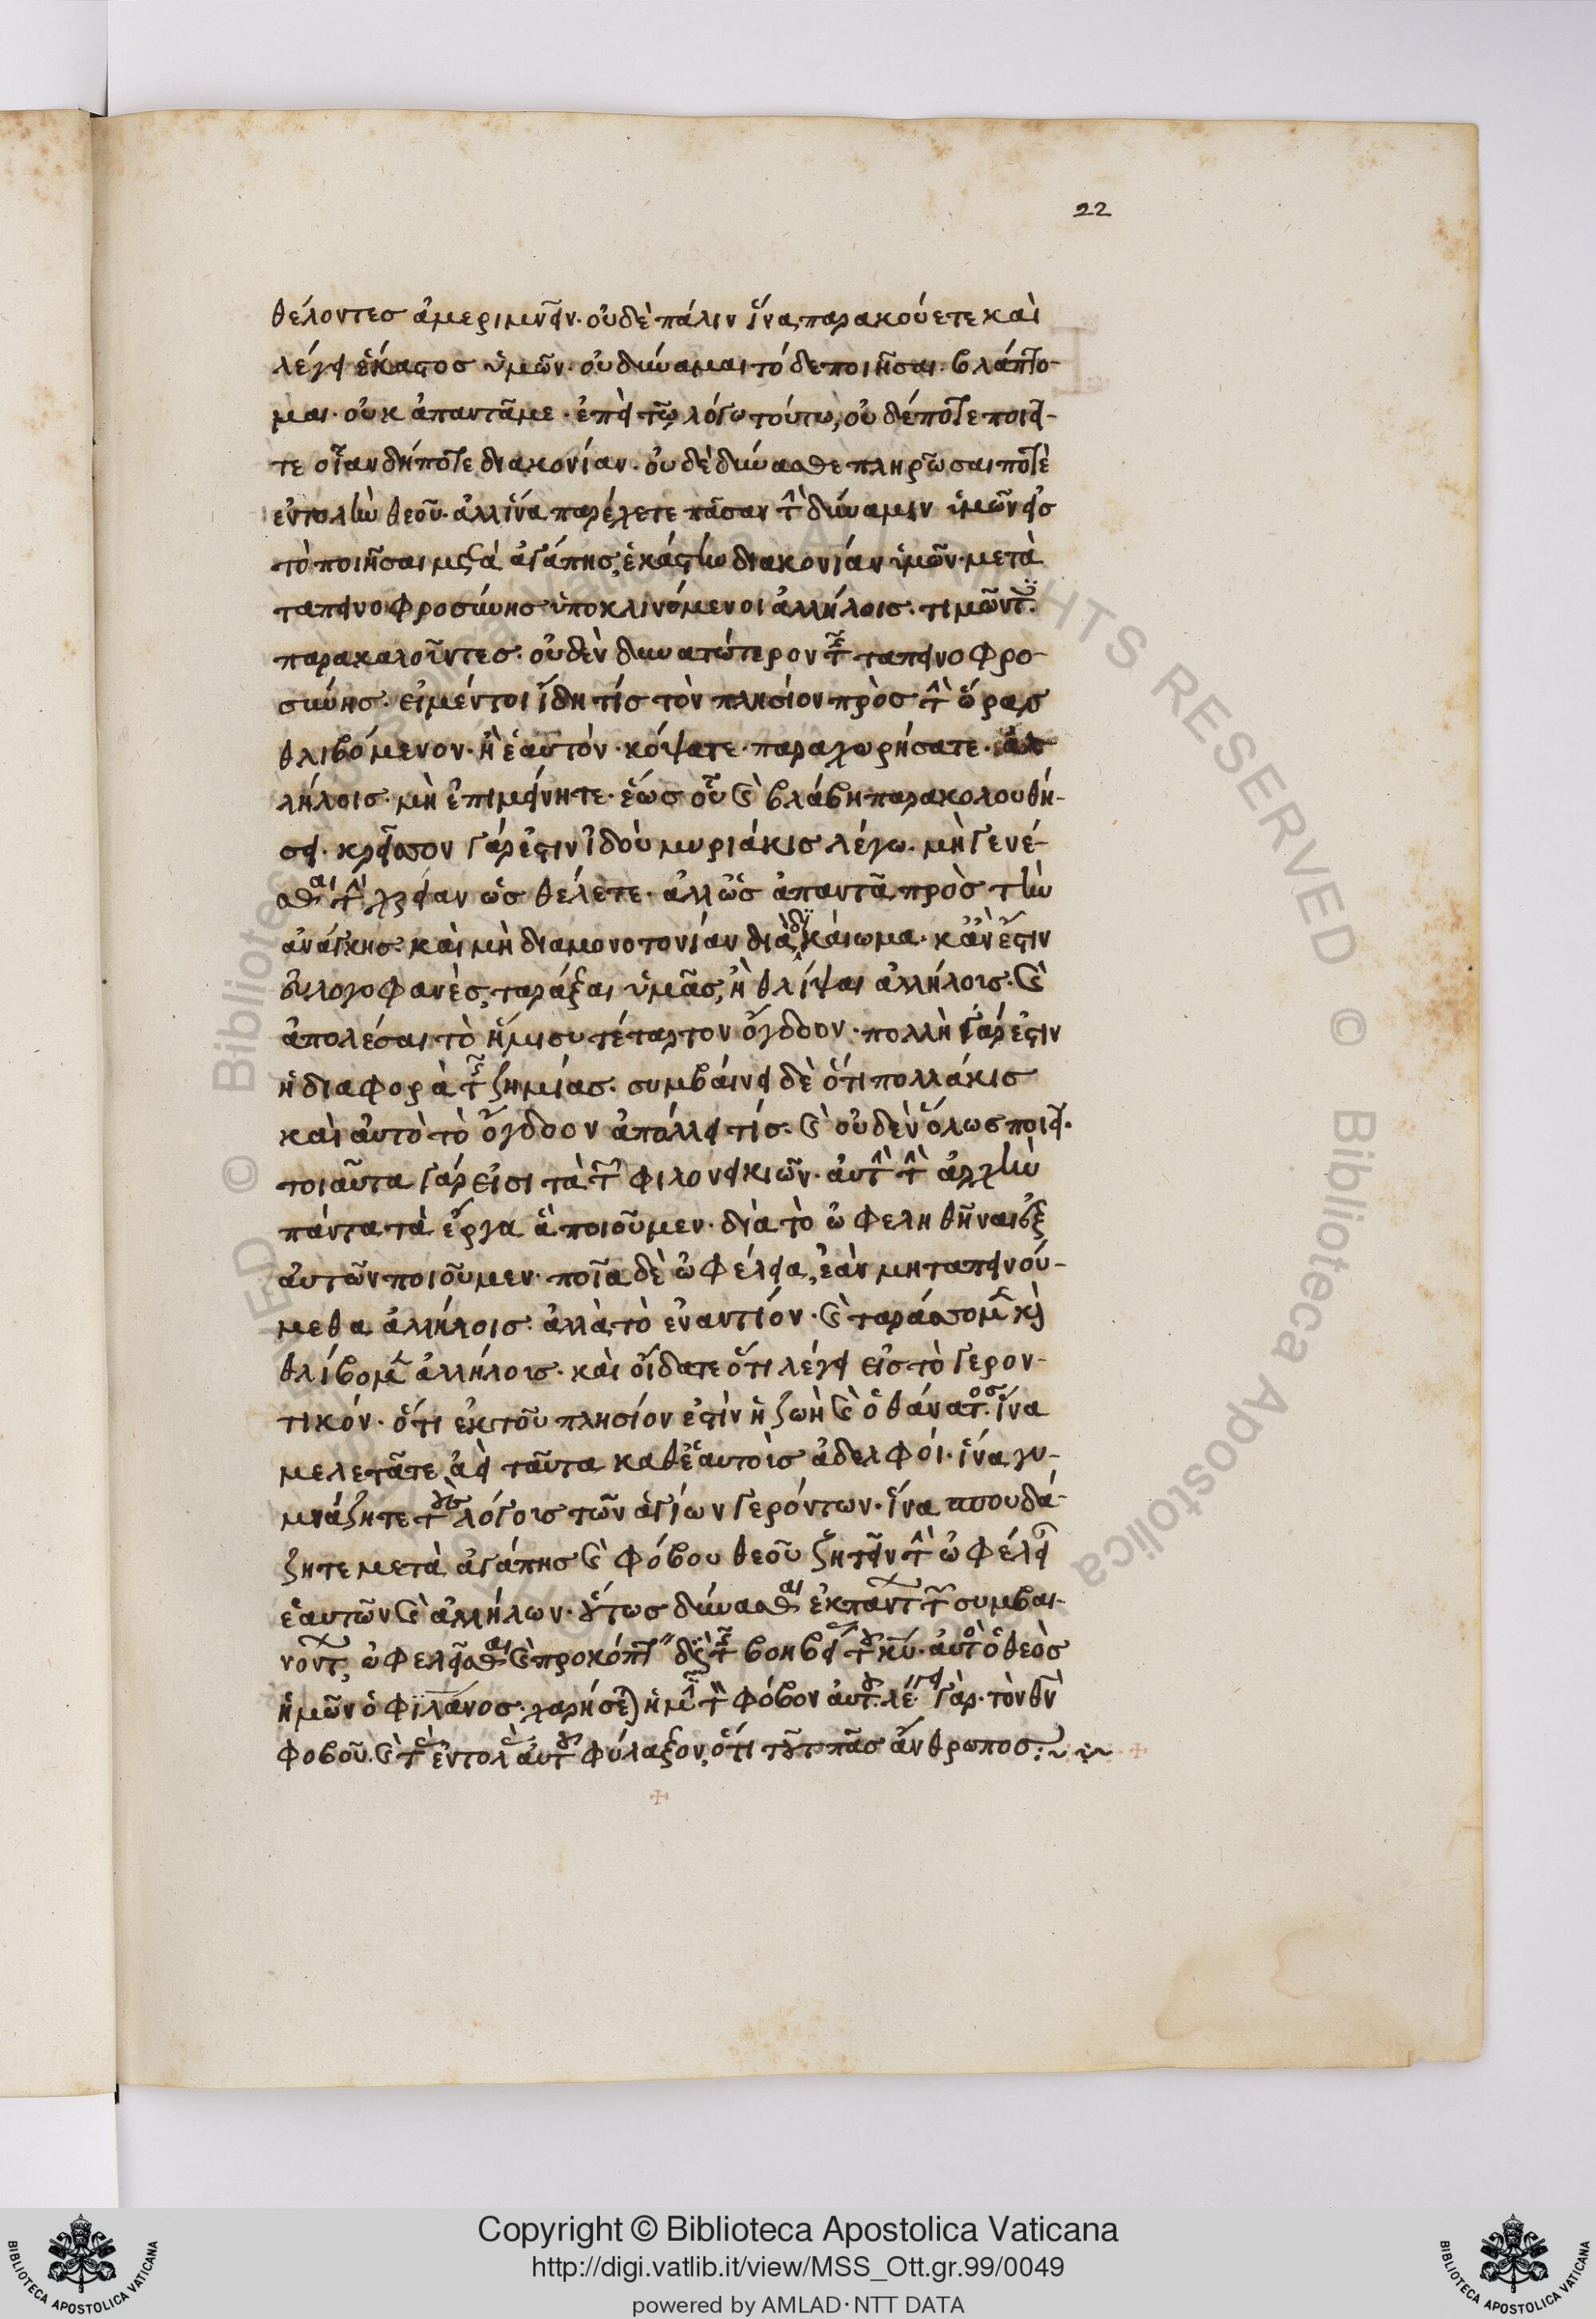 22
θέλοντες ἀμεριμνεῖν· οὐδὲ πάλιν ἵνα παρακούετε καὶ
λέγει ἕκαστος ὑμῶν· οὐ δύναμαι τόδε ποιῆσαι· βλάπτο-
μαι· οὐκ ἀπαντᾶ με· ἐπεὶ τῶ λόγω τούτω, οὐδέποτε ποιεῖ-
τε οἵαν δήποτε διακονίαν· οὐδὲ δύνασθε πληρῶσαι ποτὲ
ἐντολὴν θεοῦ· ἀλλ' ἵνα παρέχετε πᾶσαν τὴν δύναμιν ὑμῶν εἰς
τὸ ποιῆσαι μετὰ ἀγάπης, ἑκάστην διακονίαν ὑμῶν· μετὰ
ταπεινοφροσύνης ὑποκλινόμενοι ἀλλήλοις· τιμῶντες·
παρακαλοῦντες· οὐδὲν δυνατώτερον τῆς ταπεινοφρο-
σύνης· εἰ μέντοι ἴδη τίς τὸν πλησίον πρὸς τὴν ὥραν
θλιβόμενον· ἢ ἑαυτὸν· κόψατε· παραχωρήσατε· ἀλ
λήλοις· μὴ ἐπιμείνητε· ἕως οὗ καὶ βλάβη παρακολουθή-
σει· κρεῖσσον γάρ ἐστιν ἰδοὺ μυριάκις λέγω· μὴ γενέ-
σθαι τὴν χρείαν ὡς θέλετε· ἀλλ' ὡς ἀπαντᾶ πρὸς τὴν
ἀνάγκης· καὶ μὴ διαμονοτονίαν διὰ δικαίωμα· κἂν ἔστιν
εὐλογοφανὲς, ταράξαι ὑμᾶς, ἢ θλίψαι ἀλλήλοις· καὶ
ἀπολέσαι τὸ ἥμισυ τέταρτον ὄγδοον· πολλὴ γάρ ἐστιν
ἡ διαφορὰ τῆς ζημίας· συμβαίνει δὲ ὅτι πολλάκις
καὶ αὐτὸ τὸ ὄγδοον ἀπόλλει τίς· καὶ οὐδὲν ὅλως ποιεῖ·
τοιαῦτα γάρ εἰσι τὰ τῶν φιλονεικιῶν· αὐτὴν τὴν ἀρχὴν
πάντα τὰ ἔργα ἃ ποιοῦμεν· διὰ τὸ ὠφεληθῆναι ἐξ
αὐτῶν ποιοῦμεν· ποῖα δὲ ὠφέλεια, ἐὰν μὴ ταπεινού-
μεθα ἀλλήλοις· ἀλλὰ τὸ ἐναντίον· καὶ ταράσσομεν καὶ
θλίβομεν ἀλλήλοις· καὶ οἴδατε ὅτι λέγει εἰς τὸ γερον-
τικόν· ὅτι ἐκ τοῦ πλησίον ἐστὶν ἡ ζωὴ καὶ ὁ θάνατος· ἵνα
μελετᾶτε ἀεὶ ταῦτα καθ' ἑαυτοὶς ἀδελφοί· ἵνα γυ-
μνάζητε τοὺς λόγοις τῶν ἁγίων γερόντων· ἵνα σπουδά-
ζητε μετὰ ἀγάπης καὶ φόβου θεοῦ ζητεῖν τὴν ὠφέλειαν
ἑαυτῶν καὶ ἀλλήλων· οὕτως δύνασθαι ἐκ παντὸς τῶν συμβαι-
νόντων, ὠφελεῖσθαι καὶ προκόπτειν διὰ τῆς βοηθείας τοῦ κυ· αὐτὸς ὁ θεὸς
ἡμῶν ὁ φιλανος· χαρήσεται ἡμῖν τὸν φόβον αὐτοῦ· λέγει γὰρ· τὸν θν
φοβοῦ· καὶ τὰς ἐντολὰς αὐτοῦ φύλαξον, ὅτι τοῦτο πᾶς ἄνθρωπος:~
Copyright © Biblioteca Apostolica Vaticana
http://digi.vatlib.it/view/MSS_Ott.gr.99/0049
powered by AMLAD · NTT DATA